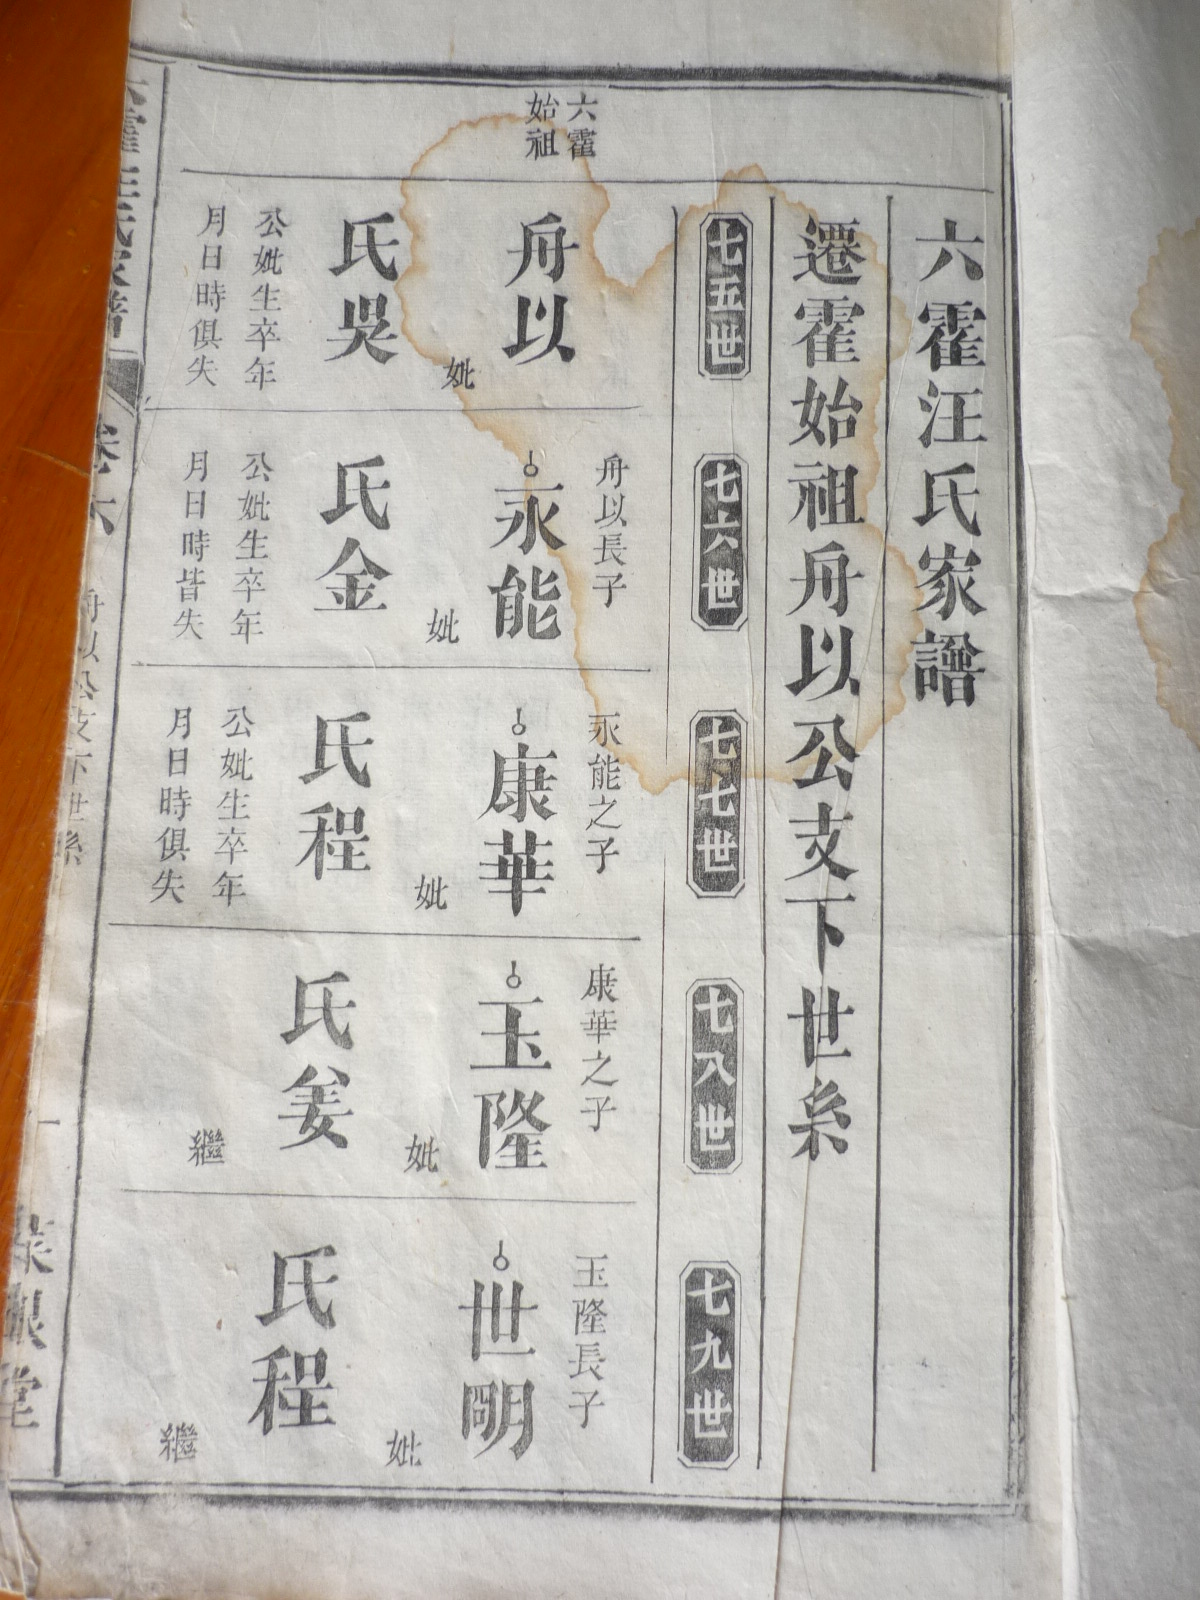 六霍汪氏家譜
遷霍始祖舟以公支下世系
七五世
七六世
七七世
七八世
七九世
六霍
始祖
舟以
妣
氏吳
公妣生卒年
月日時俱失
舟以長子
永能
妣
氏金
公妣生卒年
月日時皆失
永能之子
康華
妣
氏程
公妣生卒年
月日時俱失
康華之子
玉隆
妣
氏姜
繼
玉隆長子
世明
妣
氏程
繼
六霍汪氏家譜
卷六
舟以公支下世系
一